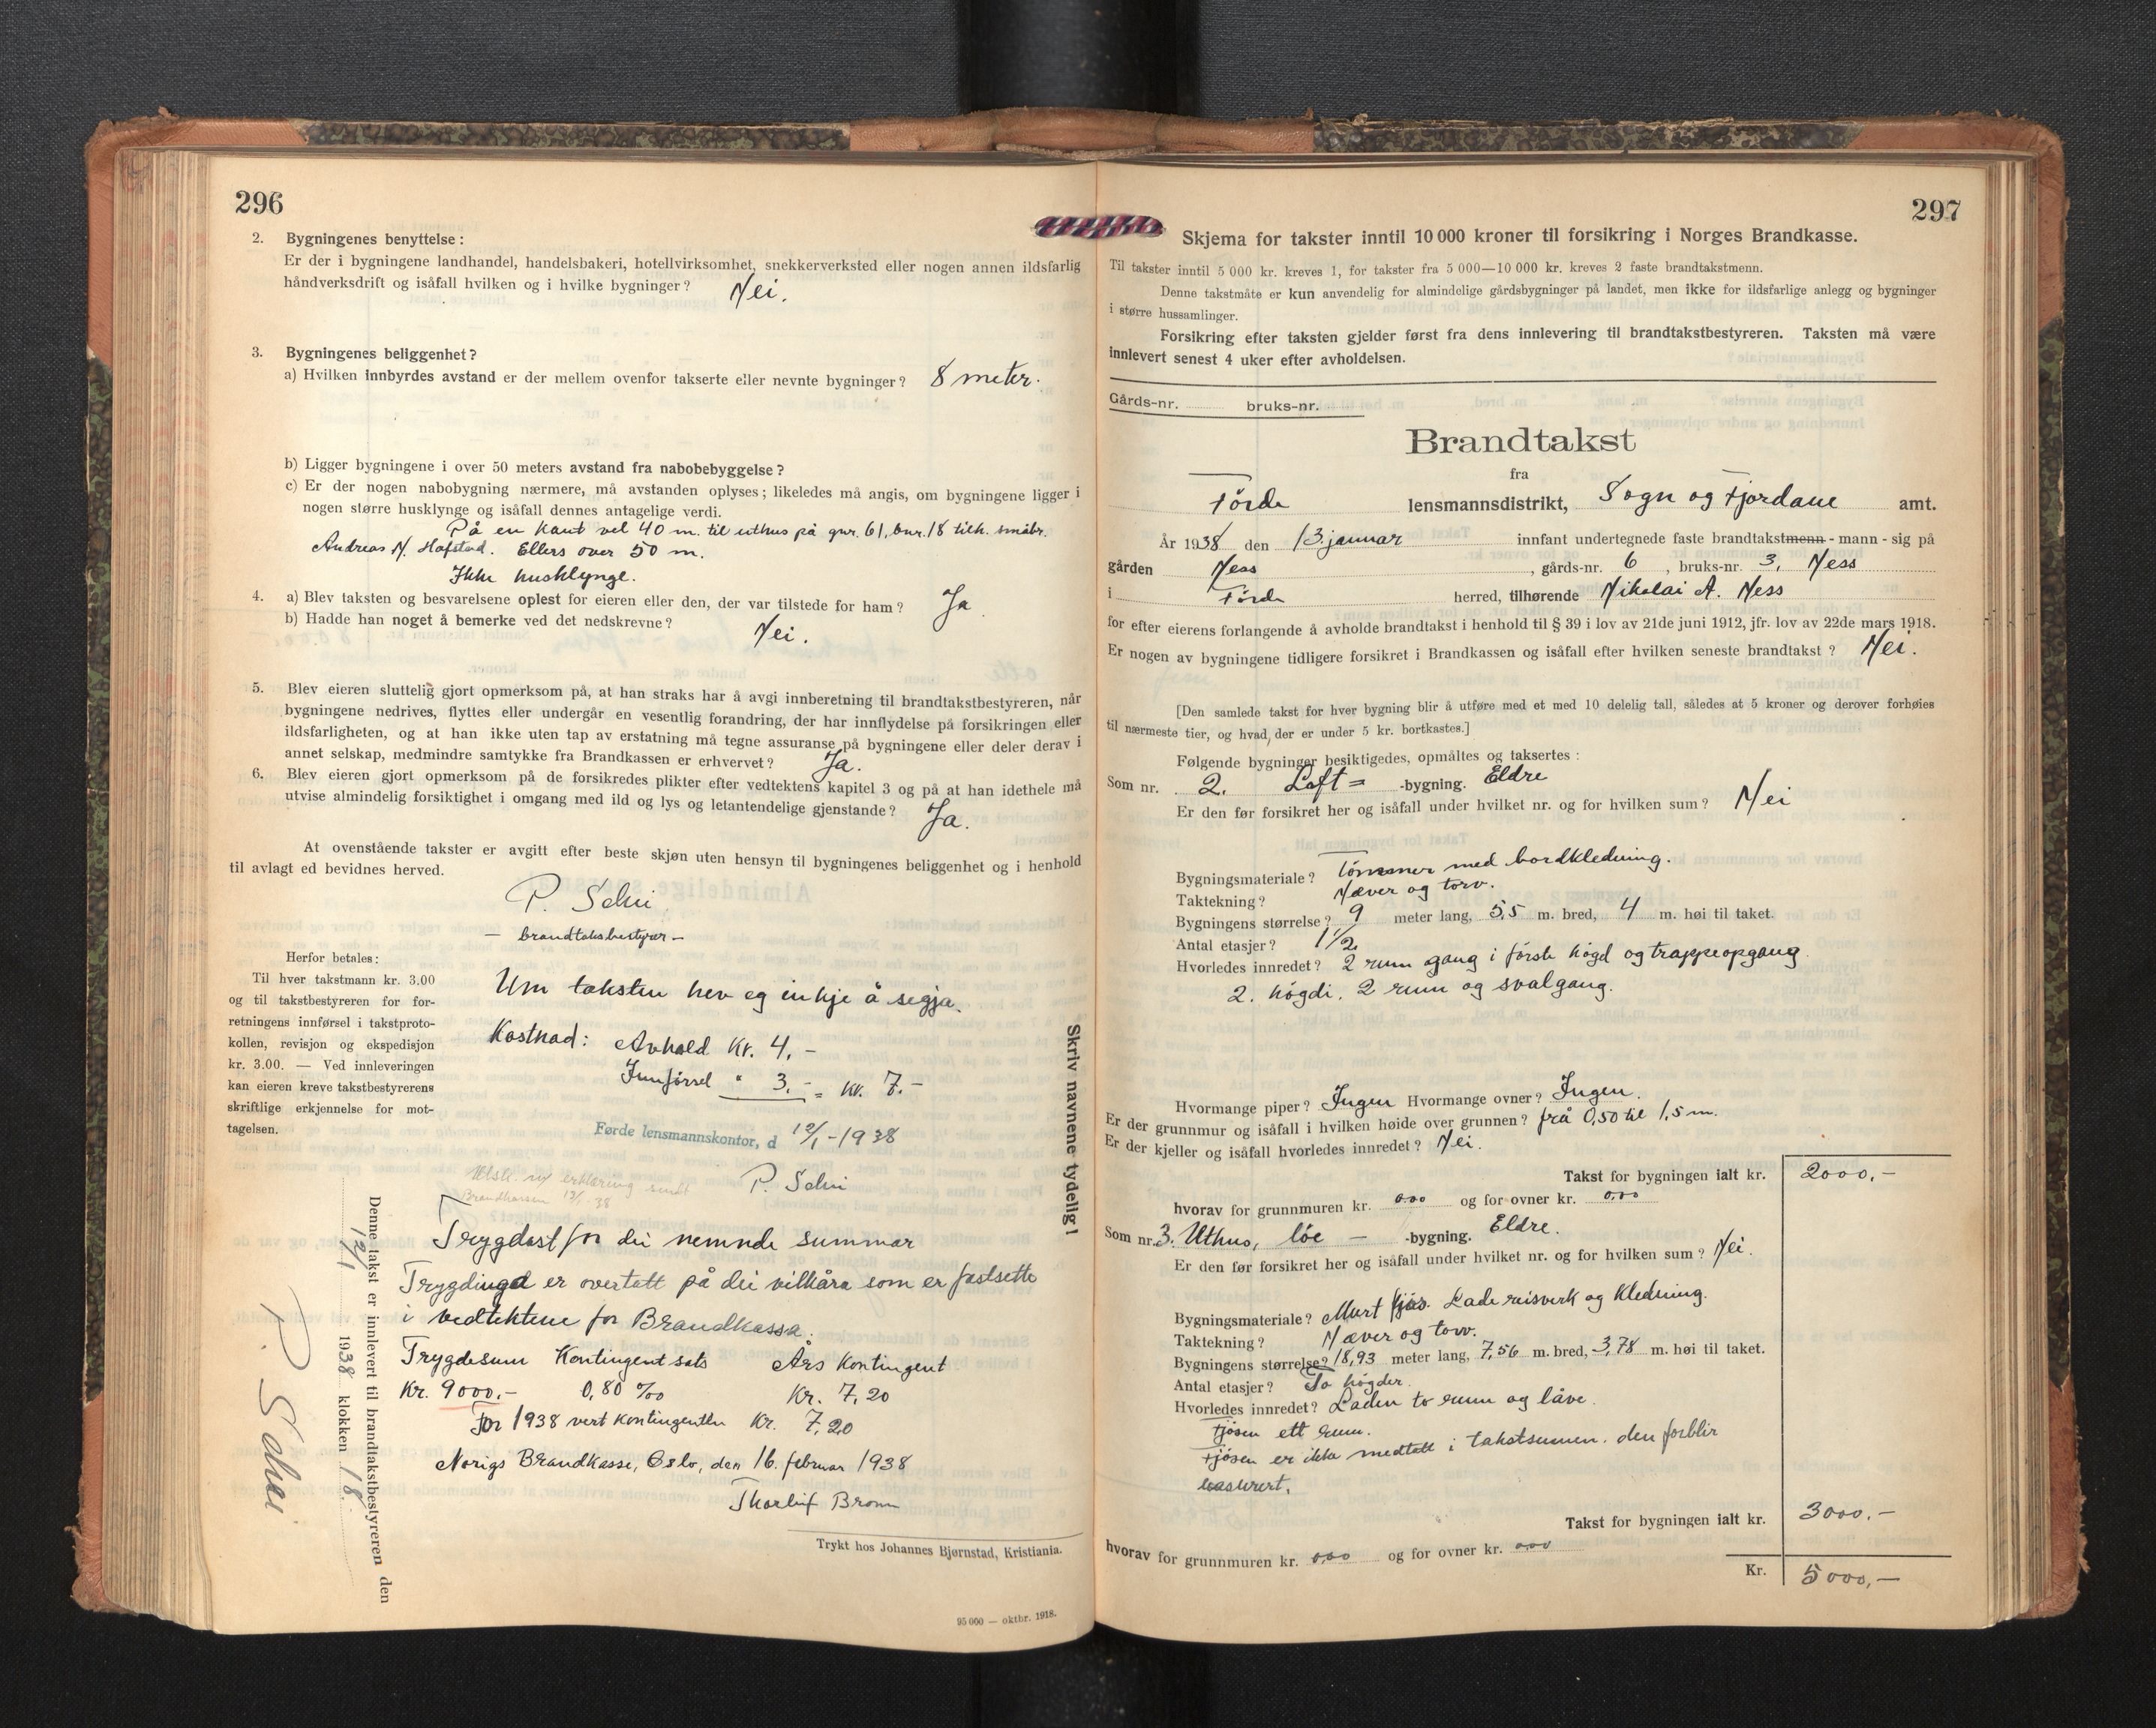 296
2. Bygningenes benyttelse:
Er der i bygningene landhandel, handelsbakeri, hotellvirksomhet, snekkerverksted eller nogen annen ildsfarlig
håndverksdrift og isåfall hvilken og i hvilke bygninger? Nei.
3. Bygningenes beliggenhet?
a) Hvilken innbyrdes avstand er der mellem ovenfor takserte eller nevnte bygninger? 8 meter.
b) Ligger bygningene i over 50 meters avstand fra nabobebyggelse?
c) Er der nogen nabobygning nærmere, må avstanden oplyses; likeledes må angis, om bygningene ligger i
nogen større husklynge og isåfall dennes antagelige verdi.
På en kant vel 40 m. til uthus på gnr. 61, bnr. 18 tilh. småbr.
Andreas N. Hafstad. Ellers over 50 m.
Ikke husklynge.
4. a) Blev taksten og besvarelsene oplest for eieren eller den, der var tilstede for ham? Ja.
b) Hadde han noget å bemerke ved det nedskrevne? Nei.
5. Blev eieren sluttelig gjort opmerksom på, at han straks har å avgi innberetning til brandtakstbestyreren, når
bygningene nedrives, flyttes eller undergår en vesentlig forandring, der har innflydelse på forsikringen eller
ildsfarligheten, og at han ikke uten tap av erstatning må tegne assuranse på bygningene eller deler derav i
annet selskap, medmindre samtykke fra Brandkassen er erhvervet? Ja.
6. Blev eieren gjort opmerksom på de forsikredes plikter efter vedtektens kapitel 3 og på at han idethele må
utvise almindelig forsiktighet i omgang med ild og lys og letantendelige gjenstande? Ja.
At ovenstående takster er avgitt efter beste skjøn uten hensyn til bygningenes beliggenhet og i henhold
til avlagt ed bevidnes herved.
P. Schei
- brandtakstbestyrer -
Herfor betales:
Til hver takstmann kr. 3.00
og til takstbestyreren for for-
retningens innførsel i takstproto-
kollen, revisjon og ekspedisjon
kr. 3.00. — Ved innleveringen
kan eieren kreve takstbestyrerens
skriftlige erkjennelse for mot-
tagelsen.
Um taksten hev eg inkje å segja.
Kostnad: Avhold Kr. 4,-
Innførsel " 3,- = kr. 7.-
Førde lensmannskontor, d 12/1-1938
P. Schei
Utsk. m/ erklæring sendt
Brandkassen 13/1-38
Trygdast for dei nemnde summar
Trygdinga er overtatt på dei vilkåra som er fastsette
i vedtektene for Brandkassa.
Trygdesum Kontingentsats Års kontingent
Kr. 9000,- 0,80 ‰ Kr. 7,20
For 1938 vert kontingenten Kr. 7,20
Norigs Brandkasse, Oslo, den 16. februar 1938
Thorleif Bronn
Denne takst er innlevert til brandtakstbestyreren den
12/1 1938 klokken 18.
P. Schei
Skriv navnene tydelig!
Trykt hos Johannes Bjørnstad, Kristiania.
95 000 — oktbr. 1918.
297
Skjema for takster inntil 10 000 kroner til forsikring i Norges Brandkasse.
Til takster inntil 5 000 kr. kreves 1, for takster fra 5 000—10 000 kr. kreves 2 faste brandtakstmenn.
Denne takstmåte er kun anvendelig for almindelige gårdsbygninger på landet, men ikke for ildsfarlige anlegg og bygninger
i større hussamlinger.
Forsikring efter taksten gjelder først fra dens innlevering til brandtakstbestyreren. Taksten må være
innlevert senest 4 uker efter avholdelsen.
Gårds-nr. bruks-nr.
Brandtakst
fra
Førde lensmannsdistrikt, Sogn og Fjordane amt.
År 1938 den 13. januar innfant undertegnede faste brandtakstmenn - mann - sig på
gården Ness, gårds-nr. 6, bruks-nr. 3, Ness
i Førde herred, tilhørende Nikolai A. Ness
for efter eierens forlangende å avholde brandtakst i henhold til § 39 i lov av 21de juni 1912, jfr. lov av 22de mars 1918.
Er nogen av bygningene tidligere forsikret i Brandkassen og isåfall efter hvilken seneste brandtakst? Nei.
[Den samlede takst for hver bygning blir å utføre med et med 10 delelig tall, således at 5 kroner og derover forhøies
til nærmeste tier, og hvad der er under 5 kr. bortkastes.]
Følgende bygninger besiktigedes, opmåltes og taksertes:
Som nr. 2. Loft = -bygning. Eldre
Er den før forsikret her og isåfall under hvilket nr. og for hvilken sum? Nei
Bygningsmateriale? Tømmer med bordkledning.
Taktekning? Næver og torv.
Bygningens størrelse? 9 meter lang, 5,5 m. bred, 4 m. høi til taket.
Antal etasjer? 1 1/2
Hvorledes innredet? 2 rum gang i første høgd og trappeopgang
2. høgdi. 2 rum og svalgang.
Hvormange piper? Ingen Hvormange ovner? Ingen.
Er der grunnmur og isåfall i hvilken høide over grunnen? frå 0,50 til 1,5 m.
Er der kjeller og isåfall hvorledes innredet? Nei.
Takst for bygningen ialt kr. 2000,-
hvorav for grunnmuren kr. 0.00 og for ovner kr. 0.00
Som nr. 3. Uthus, løe - -bygning. Eldre.
Er den før forsikret her og isåfall under hvilket nr. og for hvilken sum? Nei.
Bygningsmateriale? Murt fjøs. Lade reisverk og kledning.
Taktekning? Næver og torv.
Bygningens størrelse? 18,93 meter lang, 7,56 m. bred, 3,78 m. høi til taket.
Antal etasjer? To høgder.
Hvorledes innredet? Laden to rum og låve.
Fjøsen ett rum.
Fjøsen er ikke medtatt i takstsumen. den forblir
uassurert.
Takst for bygningen ialt kr. 3000.-
hvorav for grunnmuren kr. 0.00 og for ovner kr. 0.00
Kr. 5000,-